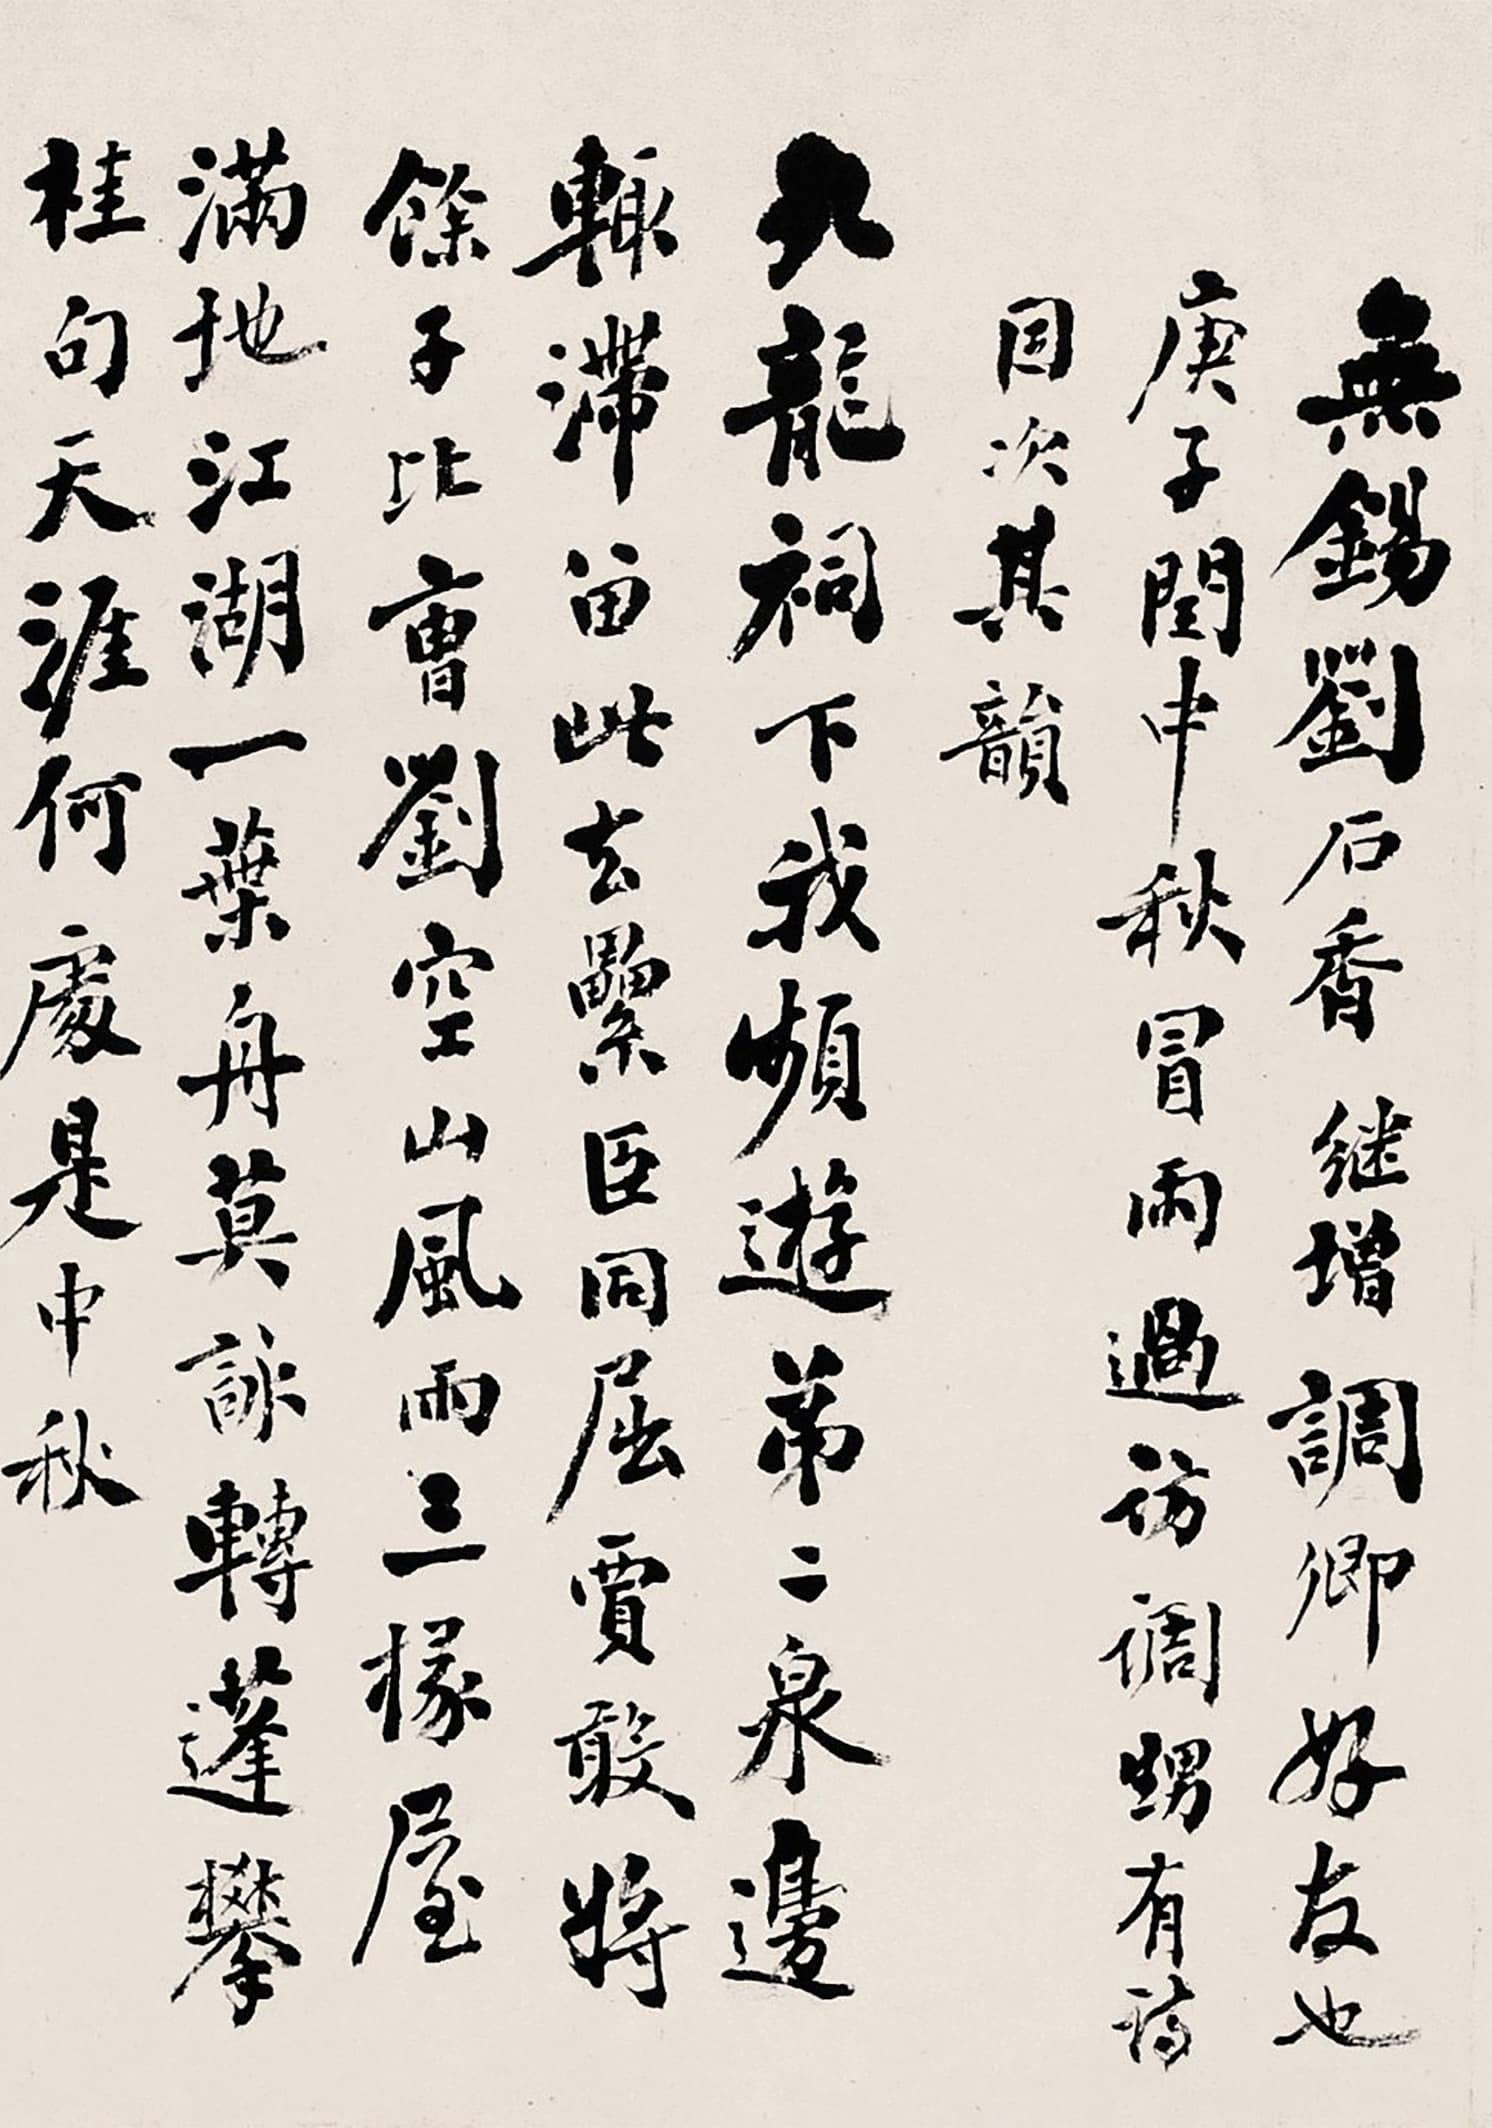 無錫劉石香继增調卿好友也
庚子閏中秋冒雨過訪調甥有詩
因次其韻
九龍祠下我頻遊第二泉邊
輙滯留此去纍臣同屈賈敢將
餘子比曹劉空山風雨三椽屋
滿地江湖一葉舟莫詠轉蓬攀
桂句天涯何處是中秋